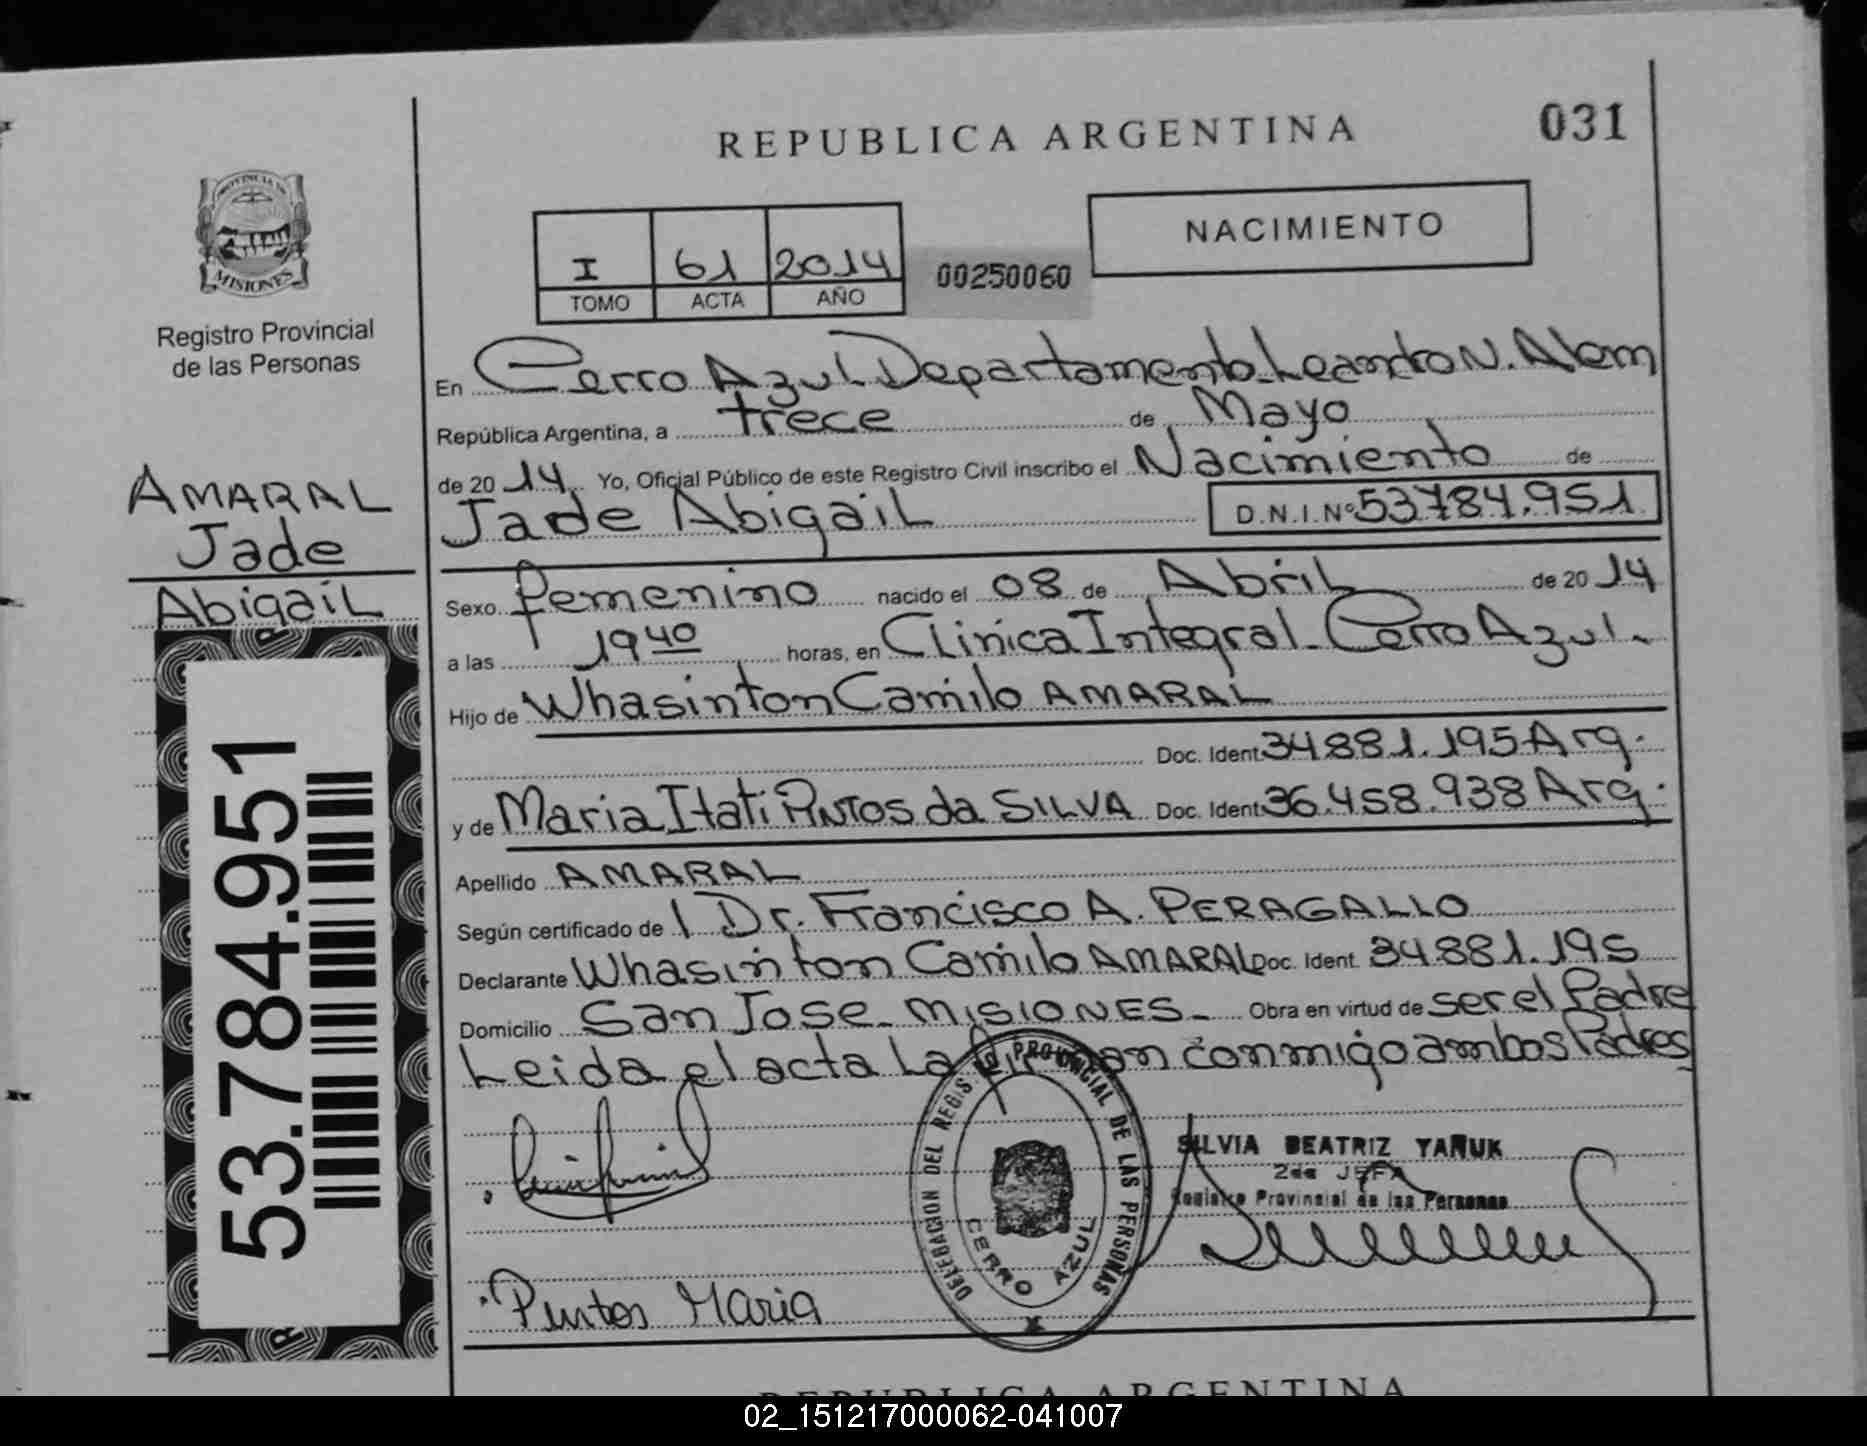 REPUBLICA ARGENTINA
031
PROVINCIA DE
MISIONES
Registro Provincial
de las Personas
I 61 2014
TOMO ACTA AÑO
00250060
NACIMIENTO
En Cerro Azul Departamento Leandro N. Alem
República Argentina, a trece de Mayo
de 20 14 Yo, Oficial Público de este Registro Civil inscribo el Nacimiento de
Jade Abigail D.N.I.Nº 53784.951
AMARAL
Jade
Abigail
Sexo femenino nacido el 08 de Abril de 20 14
a las 19 40 horas, en Clinica Integral - Cerro Azul -
Hijo de Whasinton Camilo AMARAL
Doc. Ident 34881.195 Arg.
y de Maria Itati PINTOS da SILVA Doc. Ident 36.458.938 Arg.
Apellido AMARAL
Según certificado de / Dr. Francisco A. PERAGALLO
Declarante Whasinton Camilo AMARAL Doc. Ident. 34881.195
Domicilio San Jose - MISIONES - Obra en virtud de ser el Padre
Leida el acta La firman conmigo ambos Padres
53.784.951
DELEGACION DEL REGIS. PROVINCIAL DE LAS PERSONAS
CERRO AZUL
SILVIA BEATRIZ YAÑUK
2da JEFA
Registro Provincial de las Personas
Pintos Maria
REPUBLICA ARGENTINA
02_151217000062-041007